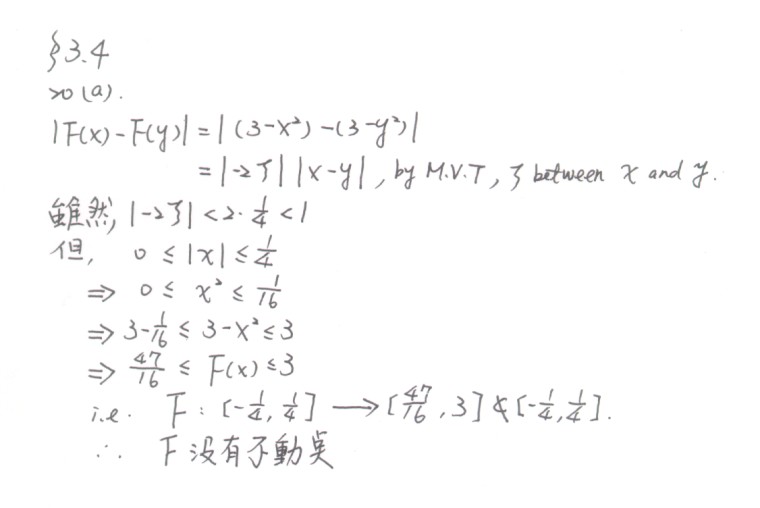 §3.4
20 (a).
|F(x)-F(y)| = |(3-x²)-(3-y²)|
= |-2ζ| |x-y|, by M.V.T, ζ between x and y.
雖然, |-2ζ| < 2·1/4 < 1
但, 0 ≤ |x| ≤ 1/4
⇒ 0 ≤ x² ≤ 1/16
⇒ 3-1/16 ≤ 3-x² ≤ 3
⇒ 47/16 ≤ F(x) ≤ 3
i.e. F : [-1/4, 1/4] ⟶ [47/16, 3] ⊄ [-1/4, 1/4].
∴ F 没有不動奌